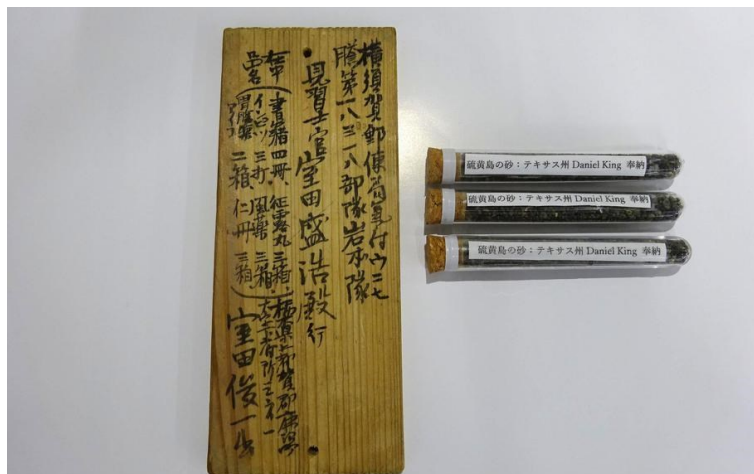 横須賀郵便局氣付ウ二七
膽第一八三一八部隊岩本隊
見習士官室田盛浩殿行
在中
品名
書籍四冊、征露丸三箱、
三打 風薬 三箱
二箱 仁丹 三箱
室田俊一
硫黄島の砂：テキサス州 Daniel King 奉納
硫黄島の砂：テキサス州 Daniel King 奉納
硫黄島の砂：テキサス州 Daniel King 奉納